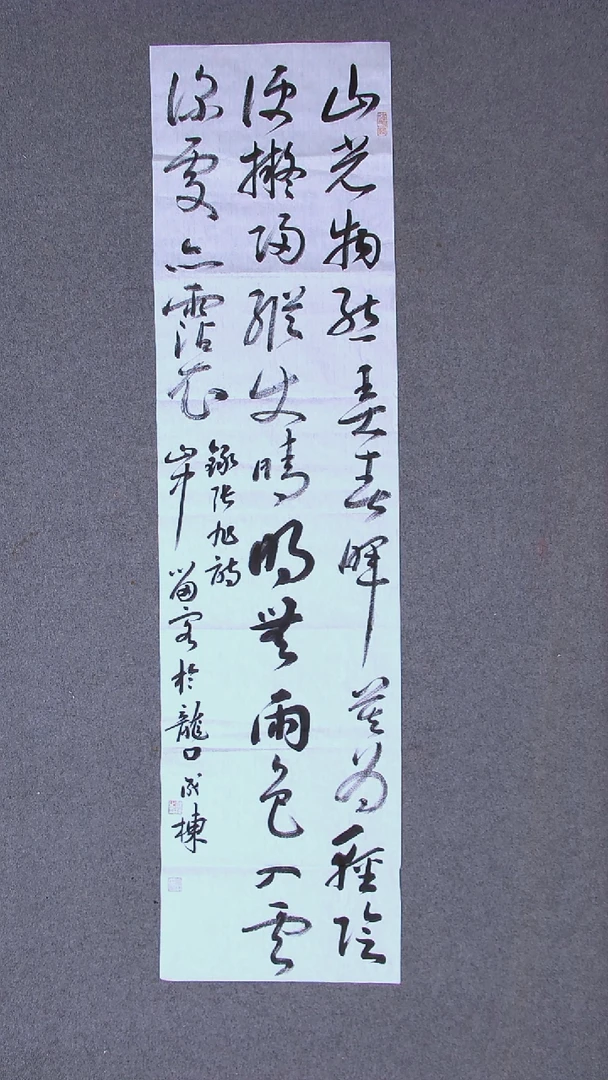 山光物態弄春暉莫為輕陰
便擬歸縱使晴明無雨色入雲
深處亦霑衣
錄張旭詩
山中留客於龍口成棟